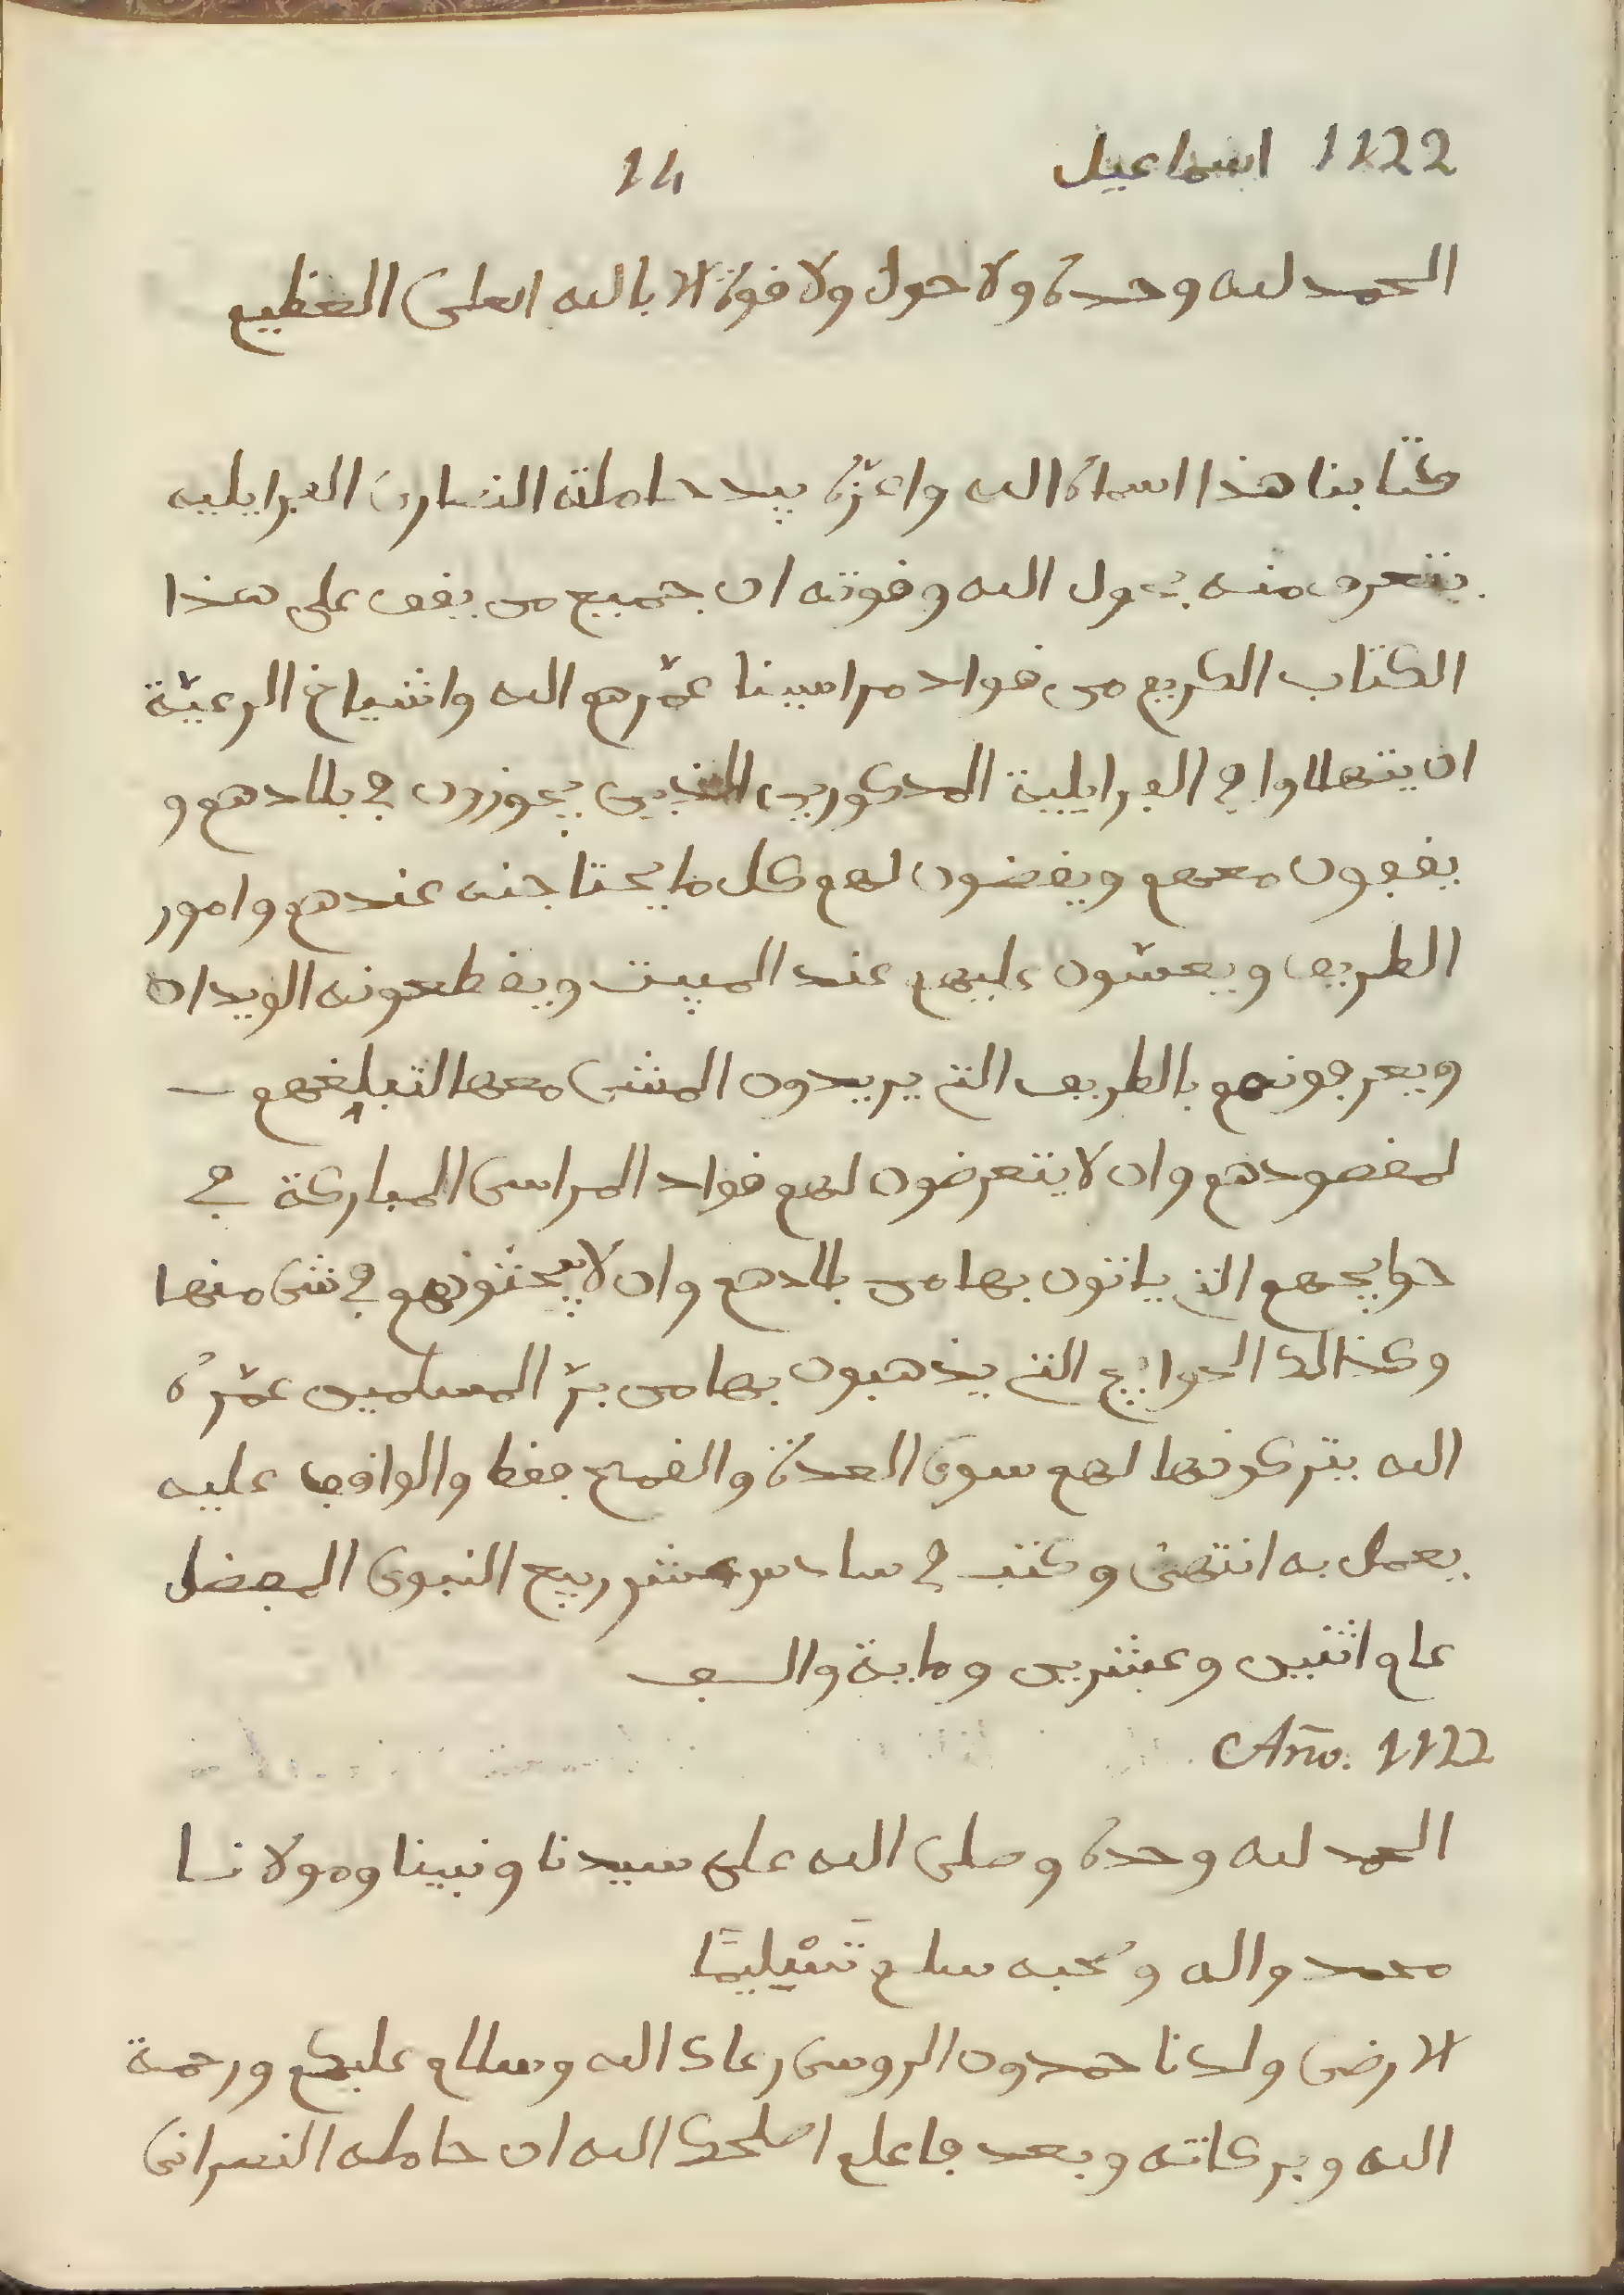 1122 اسماعيل
14
الحمد لله وحده ولا حول ولا قوة الا بالله العلى العظيم
كتابنا هذا اسماه الله واعزّه بيد حاملته النصارى الفرايليه
يتعرف منه بحول الله وقوته ان جميع من يقف على هذا
الكتاب الكريم من قواد مراسينا عمّرهم الله واشياخ الرعيّة
ان يتهلاوا في الفرايلية المذكورين الذين يجوزون في بلادهم و
يقفون معهم ويقضون لهم كل ما يحتاجنه عندهم وامور
الطريق ويعسّون عليهم عند المبيت ويقطعونه الويدان
ويعرفونهم بالطريق التي يريدون المشى معها لتبلغهم
لمقصودهم وان لا يتعرضون لهم قواد المراسى المباركة في
حوايجهم التي ياتون بها من بلادهم وان لا يبحثونهم في شى منها
وكذالك الحوايج التي يذهبون بها من برّ المسلمين عمّره
الله يتركونها لهم سوى العدة والقمح فقط والواقف عليه
يعمل به انتهى وكتب في سادس عشر ربيع النبوى المفضل
عام اثنين وعشرين وماية والف
Año. 1122
الحمد لله وحده وصلى الله على سيدنا ونبينا ومولانا
محمد واله وصحبه سلم تَسْلِيمًا
الارضى ولدنا حمدون الروسى رعاك الله وسلام عليكم ورحمة
الله وبركاته وبعد فاعلم اصلحك الله ان حامله النصرانى